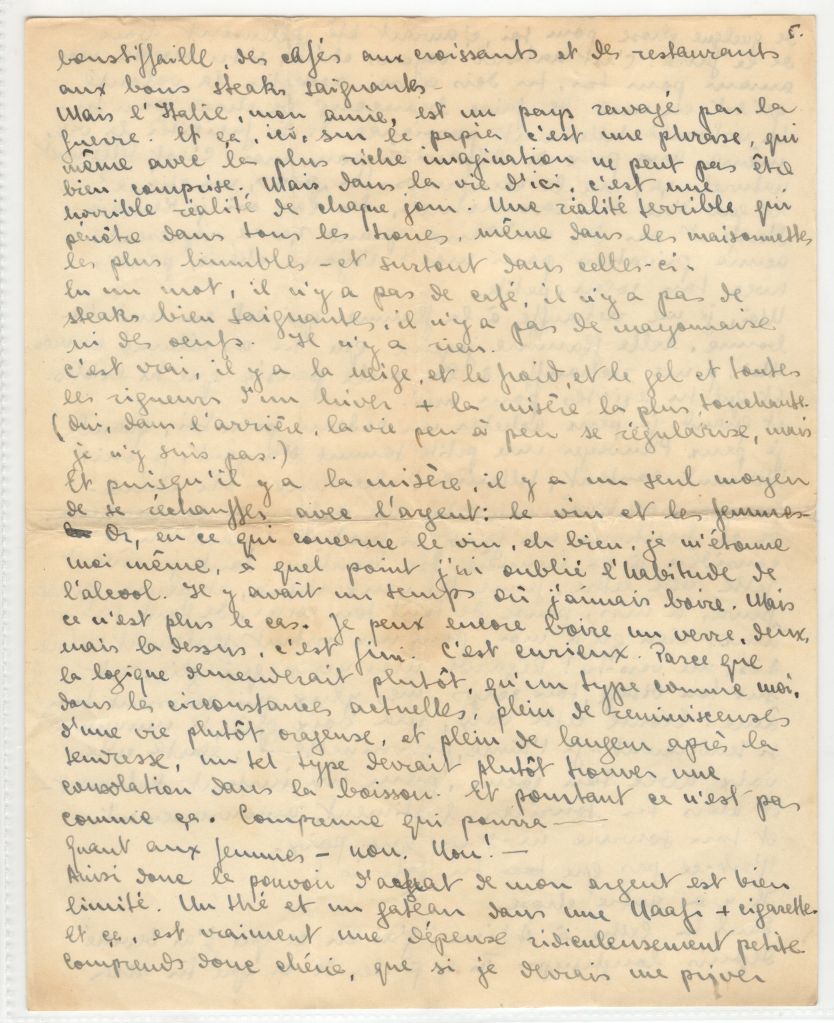 5.
boustiffaille, des cafés aux croissants et des restaurants
aux bons steaks saignants -
Mais l'Italie, mon amie, est un pays ravagé par la
guerre. Et ça, ici, sur le papier c'est une phrase, qui
même avec la plus riche imagination ne peut pas être
bien comprise. Mais dans la vie d'ici, c'est une
horrible réalité de chaque jour. Une réalité terrible qui
pénêtre dans tous les trous, même dans les maisonnettes
les plus humbles - et surtout dans celles-ci.
En un mot, il n'y a pas de café, il n'y a pas de
steaks bien saignants, il n'y a pas de mayonnaise
ni des oeufs. Il n'y a rien.
C'est vrai, il y a la neige, et le froid, et le gel et toutes
les rigueurs d'un hiver + la misère la plus touchante.
(Oui, dans l'arrière, la vie peu à peu se régularise, mais
je n'y suis pas.)
Et puisqu'il y a la misère, il y a un seul moyen
de se réchauffer avec l'argent: le vin et les femmes -
Or, en ce qui concerne le vin, eh bien, je m'étonne
moi même, à quel point j'ai oublié l'habitude de
l'alcool. Il y avait un temps où j'aimais boire. Mais
ce n'est plus le cas. Je peux encore boire un verre, deux,
mais la dessus, c'est fini. C'est curieux. Parce que
la logique demenderait plutôt, qu'un type comme moi,
dans les circonstances actuelles, plein de reminiscenses
d'une vie plutôt orageuse, et plein de langeur après la
tendresse, un tel type devrait plutôt trouver une
consolation dans la boisson. Et pourtant ce n'est pas
comme ça. Comprenne qui pourra —
Quant aux femmes - non. Non! —
Ainsi donc le pouvoir d'achat de mon argent est bien
limité. Un thé et un gateau dans une Naafi + cigarettes.
Et ça, est vraiment une dépense ridiculeusement petite
Comprends donc chérie, que si je devrais me priver